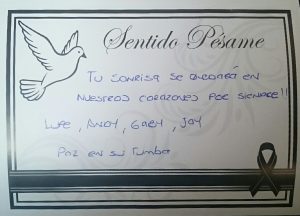 Sentido Pésame
TU SONRISA SE QUEDARÁ EN
NUESTROS CORAZONES POR SIEMPRE!!
LUPE, ANDY, GABY, JAY
PAZ EN SU TUMBA